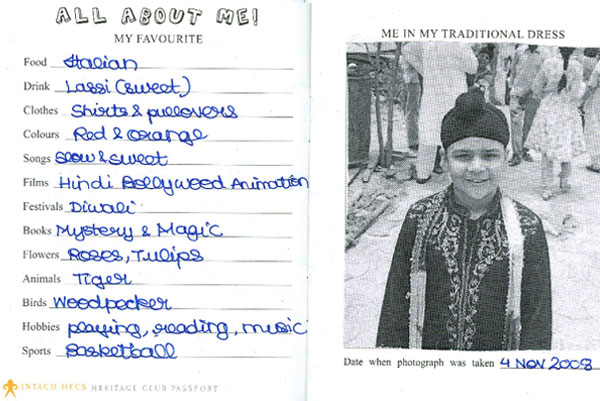 ALL ABOUT ME!
MY FAVOURITE
Food Italian
Drink Lassi (sweet)
Clothes Shirts & pullovers
Colours Red & orange
Songs Slow & sweet
Films Hindi Bollywood Animation
Festivals Diwali
Books Mystery & Magic
Flowers Roses, Tulips
Animals Tiger
Birds Woodpecker
Hobbies playing, reading, music
Sports Basketball
INTACH HECS HERITAGE CLUB PASSPORT
ME IN MY TRADITIONAL DRESS
Date when photograph was taken 4 Nov 2008